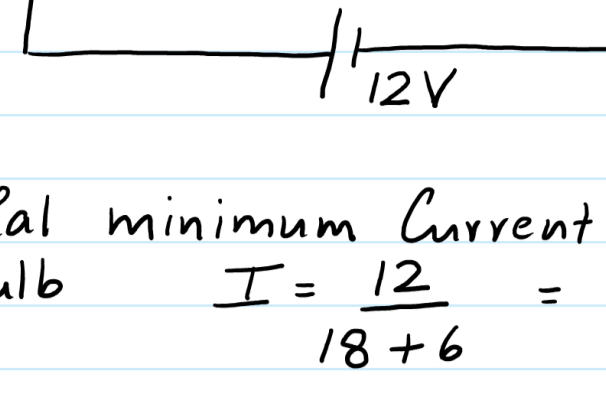 12V
minimum Current
I = 12 / 18 + 6 =